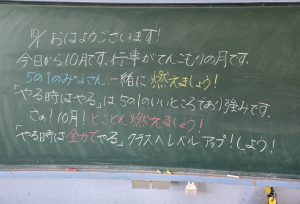 10/1 おはようございます!
今日から10月です。行事がてんこもりの月です。
5の1のみなさん、一緒に燃えましょう!
「やる時はやる」は、5の1のいいところであり強みです。
さぁ!10月!とことん燃えましょう!
「やる時は全力でやる」クラスへレベルアップ!しよう!